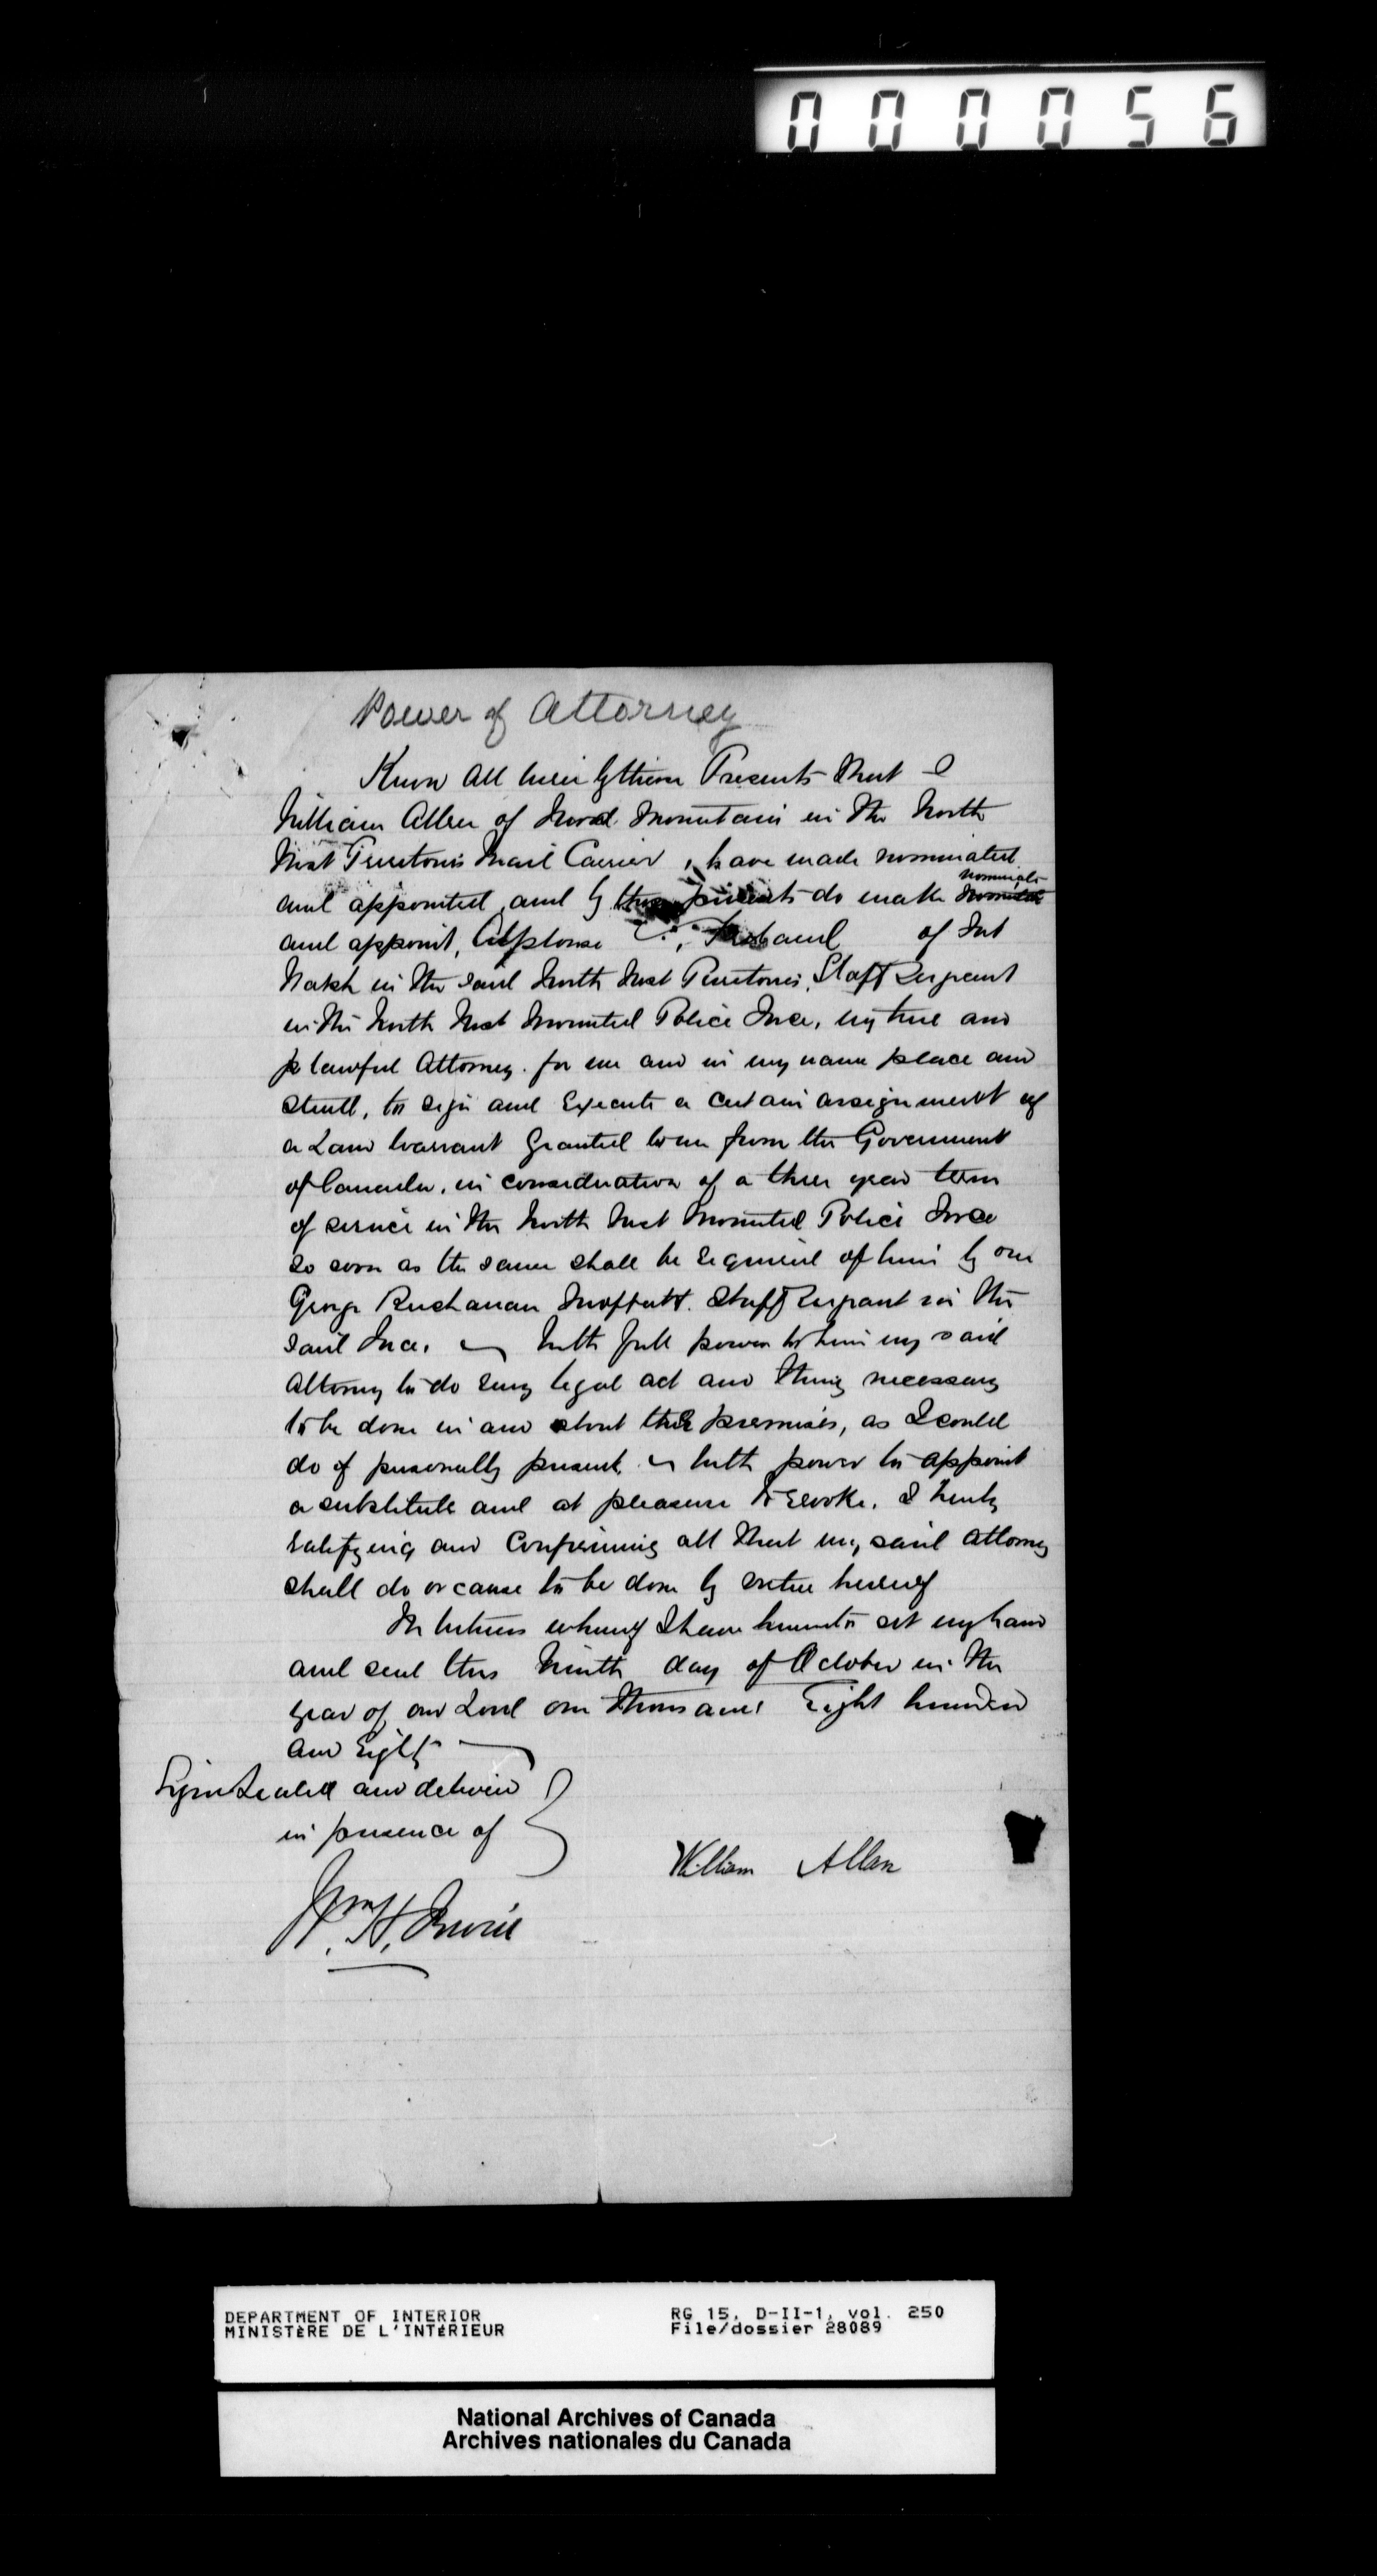 000056
Power of Attorney
Know All Men by these Presents that I
William Allen of Wood Mountain in the North
West Territories Mail Carrier, have made nominated
and appointed and by these presents do make nominate
and appoint, Alphonse of Fort
Walsh in the said North West Territories, Staff Sergeant
in the North West Mounted Police Force, my true and
lawful Attorney. for me and in my name place and
stead, to sign and Execute a certain assignment of
a Land Warrant Granted to me from the Government
of Canada, in consideration of a three year term
of service in the North West Mounted Police Force
so soon as the same shall be required of him by one
George Buchanan Moffatt. Staff Sergeant in the
said Force. With full power to him my said
Attorney to do every legal act and thing necessary
to be done in and about the premises, as I could
do if personally present, with power to appoint
a substitute and at pleasure to revoke. I hereby
ratifying and Confirming all that my said Attorney
shall do or cause to be done by virtue hereof
In Witness whereof I have hereunto set my hand
and seal this Ninth day of October in the
year of our Lord one thousand Eight hundred
and Eighty
Sign Sealed and deliverd
in presence of
William Allan
Wm H. Irvine
DEPARTMENT OF INTERIOR RG 15, D-II-1, vol. 250
MINISTÈRE DE L'INTÉRIEUR File/dossier 28089
National Archives of Canada
Archives nationales du Canada